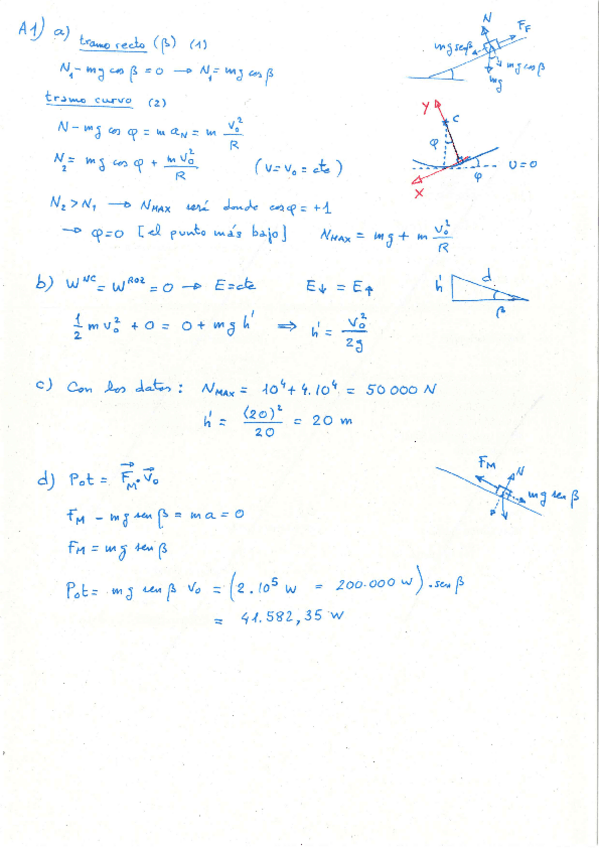 A1) a) tramo recto (β) (1)
N₁ - mg cos β = 0 → N₁ = mg cos β
tramo curvo (2)
N - mg cos φ = m a_N = m v₀²/R
N₂ = mg cos φ + m v₀²/R (v = v₀ = cte)
N₂ > N₁ → N_MAX será donde cos φ = +1
→ φ = 0 [el punto más bajo] N_MAX = mg + m v₀²/R
N F_F
mg sen β mg cos β
mg
Y C
φ
φ U = 0
X
b) W^NC = W^ROZ = 0 → E = cte E↓ = E↑
½ m v₀² + 0 = 0 + mg h' ⇒ h' = v₀²/2g
h' d
β
c) Con los datos: N_MAX = 10⁴ + 4.10⁴ = 50000 N
h' = (20)²/20 = 20 m
d) Pot = F_M · v₀
F_M - mg sen β = ma = 0
F_M = mg sen β
Pot = mg sen β v₀ = (2.10⁵ W = 200.000 W) . sen β
= 41.582,35 W
F_M N
mg sen β